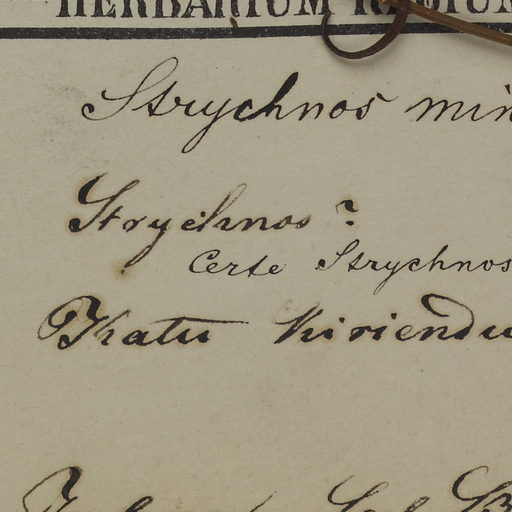 HERBARIUM
Strychnos min
Strychnos ?
Certe Strychnos
Katu kiriendu